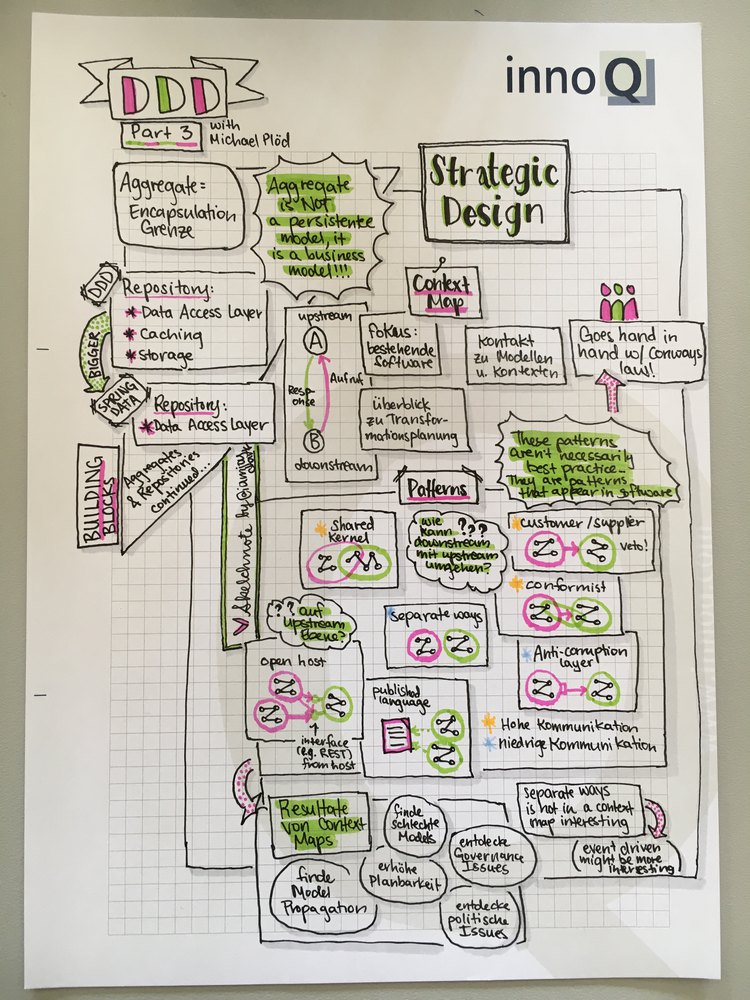 DDD
Part 3
with
Michael Plöd
innoQ
Aggregate =
Encapsulation
Grenze
Aggregate
is Not
a persistence
model, it
is a business
model!!!
Strategic
Design
DDD
Repository:
* Data Access Layer
* Caching
* Storage
BIGGER
SPRING
DATA
Repository:
* Data Access Layer
BUILDING
BLOCKS
Aggregates
& Repositories
continued...
Context
Map
upstream
A
Response
Aufruf
B
downstream
Fokus:
bestehende
Software
Kontakt
zu Modellen
u. Kontexten
überblick
zu Transfor-
mationsplanung
Goes hand in
hand w/ conways
law!
These patterns
aren't necessarily
best practice...
They are patterns
that appear in software
Patterns
Sketchnote by
* Shared
Kernel
wie ???
kann
downstream
mit upstream
umgehen?
* customer/supplier
veto!
* conformist
?? auf
upstream
Ebene?
* separate ways
* Anti-corruption
layer
open host
interface
(e.g. REST)
from host
published
language
* Hohe Kommunikation
* niedrige Kommunikation
Resultate
von Context
Maps
finde
schlechte
Models
entdecke
Governance
Issues
finde
Model
Propagation
erhöhe
Planbarkeit
entdecke
politische
Issues
separate ways
is not in a context
map interesting
(event driven
might be more
interesting)